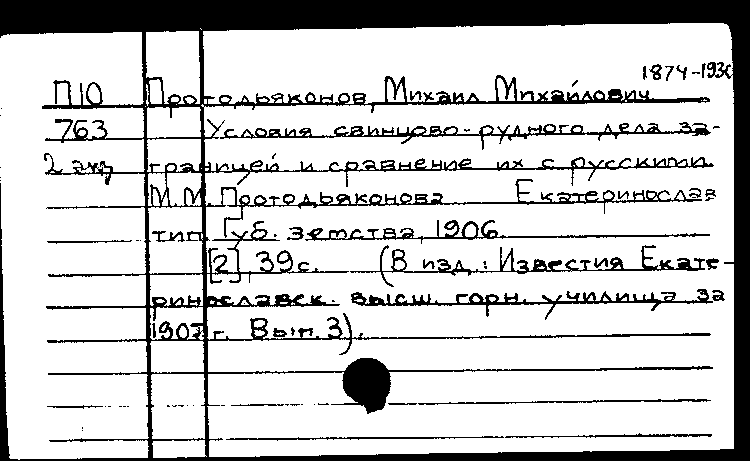 1874-1930
П10 Протодьяконов, Михаил Михайлович
763 Условия свинцово-рудного дела за-
2 экз границей и сравнение их с русскими.
М.М. Протодьяконова Екатеринослав
тип. Губ. земства, 1906.
[2], 39 с. (В изд.: Известия Екате-
ринославск. высш. горн. училища за
1907 г. Вып. 3).